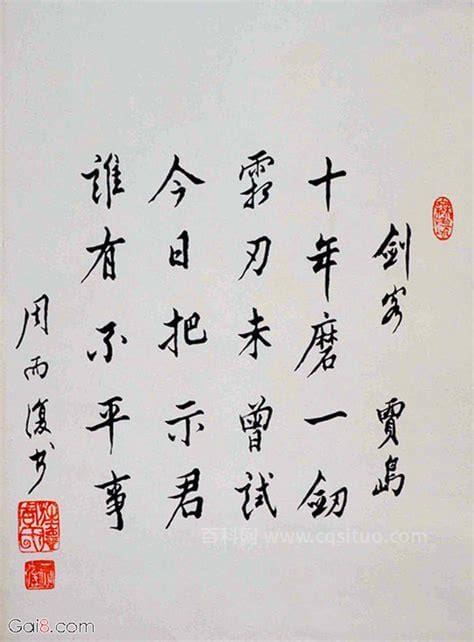 剑客 賈島
十年磨一釼
霜刃未曾試
今日把示君
誰有不平事
周而復书
百科网 www.cqsituo.com
Gai8.com